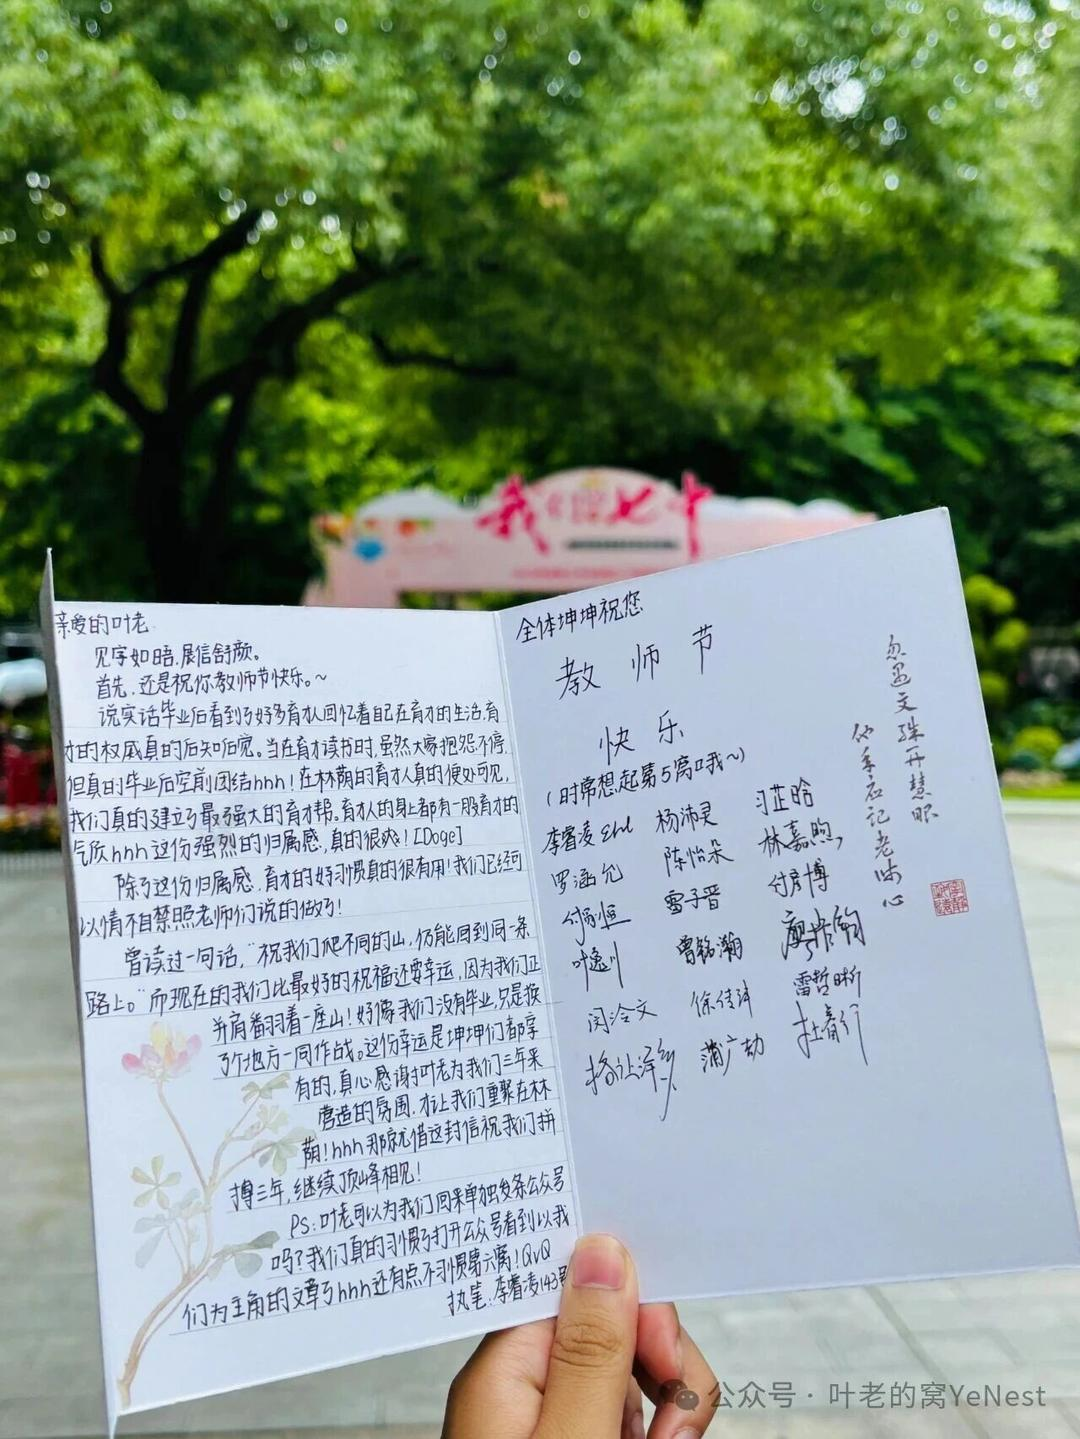 亲爱的叶老
见字如晤,展信舒颜。
首先,还是祝你教师节快乐。~
说实话毕业后看到了好多育才人回忆着自己在育才的生活,育
才的权威真的后知后觉。当在育才读书时,虽然大家抱怨不停,
但真的毕业后空前团结hnn!在林荫的育才人真的便处可见,
我们真的建立了最强大的育才帮。育才人的身上都有一股育才的
气质hnn这份强烈的归属感,真的很爽![Doge]
除了这份归属感,育才的好习惯真的很有用!我们已经可
以情不自禁照老师们说的做了!
曾读过一句话,“祝我们爬不同的山,仍能回到同一条
路上。”而现在的我们比最好的祝福还要幸运,因为我们正
并肩翻羽着一座山!好像我们没有毕业,只是换
了个地方一同作战。这份幸运是坤坤们都享
有的,真心感谢叶老为我们三年来
营造的氛围,才让我们重聚在林
荫!hnn那就借这封信祝我们拼
搏三年,继续顶峰相见!
PS:叶老可以为我们回来单独发条公众号
吗?我们真的习惯了打开公众号看到以我
们为主角的文章了hnn还有点不习惯第六窝!QvQ
执笔:李睿凌143号
全体坤坤祝您
教师节
快乐
(时常想起第5窝口我~)
李睿凌 杨沛灵 习芷晗
罗涵允 陈怡朵 林嘉煦
付承恒 雪子晋 付彦博
叶逸川 曾铭瀚
闵泠文 徐佳沣 雷哲昕
蒲广劫 杜春行
忽遇文殊开慧眼
他年应记老师心
我 七中
公众号·叶老的窝YeNest